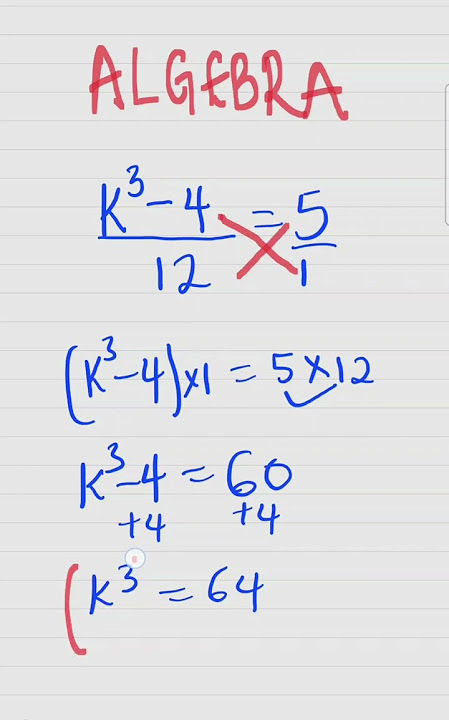 ALGEBRA
K³ - 4 = 5
12 1
(K³ - 4) × 1 = 5 × 12
K³ - 4 = 60
+4 +4
(K³ = 64